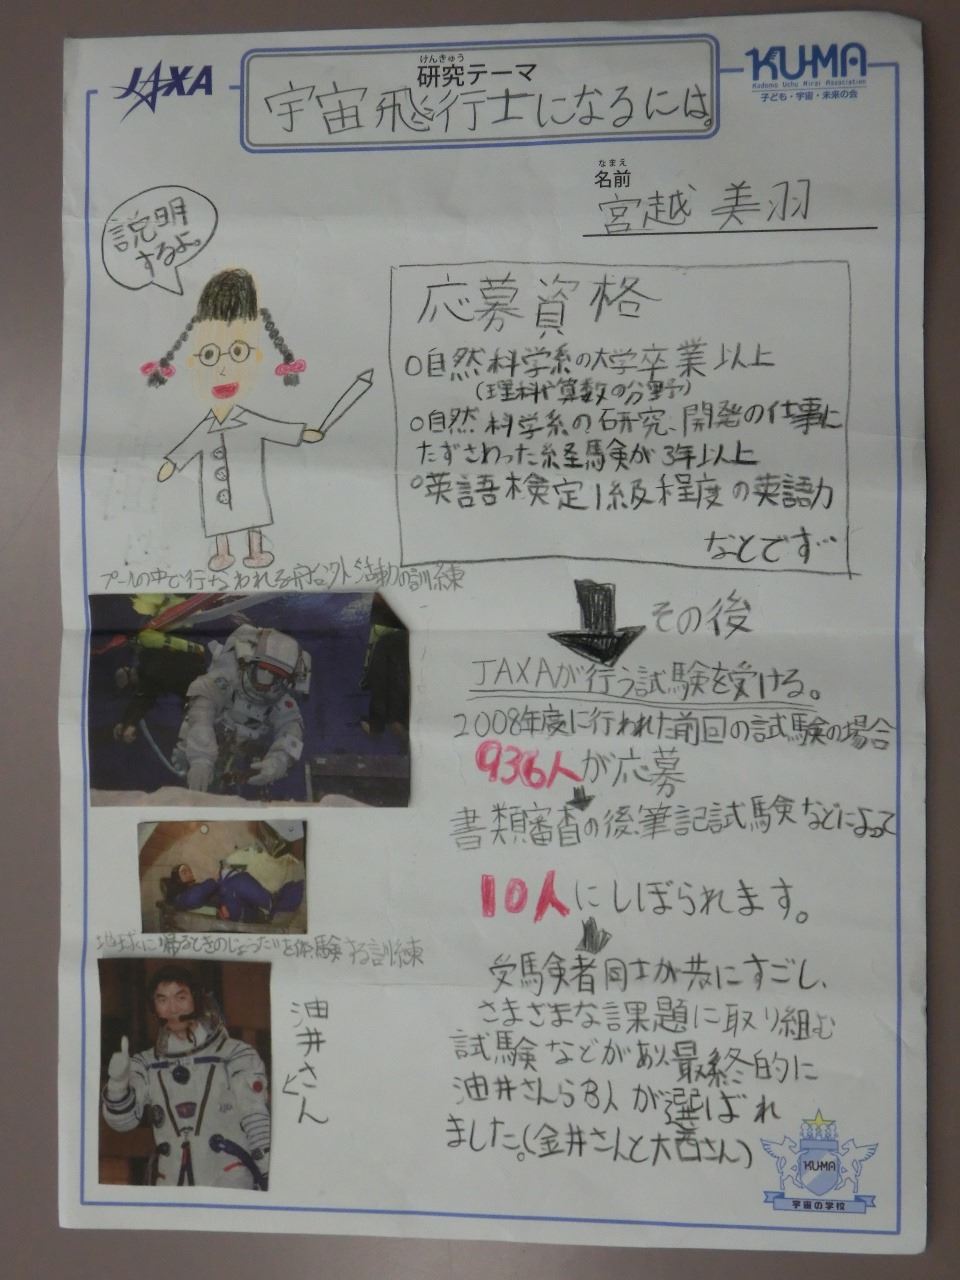 JAXA
けんきゅう
研究テーマ
宇宙飛行士になるには。
KU-MA
Kodomo Uchu Mirai Association
子ども・宇宙・未来の会
なまえ
名前
宮越 美羽
説明
するよ。
応募資格
○自然科学系の大学卒業以上
(理科や算数の分野)
○自然科学系の研究、開発の仕事に
たずさわった経験が3年以上
○英語検定1級程度の英語力
などです…
プールの中で行なわれる船外活動の訓練
その後
JAXAが行う試験を受ける。
2008年度に行われた前回の試験の場合
936人が応募
書類審査の後、筆記試験などによって
10人にしぼられます。
地球に帰るときのじょうたいを体験する訓練
受験者同士が共にすごし、
さまざまな課題に取り組む
試験などがあり、最終的に
油井さんら3人が選ばれ
ました。(金井さんと大西さん)
油井さん
KU-MA
宇宙の学校